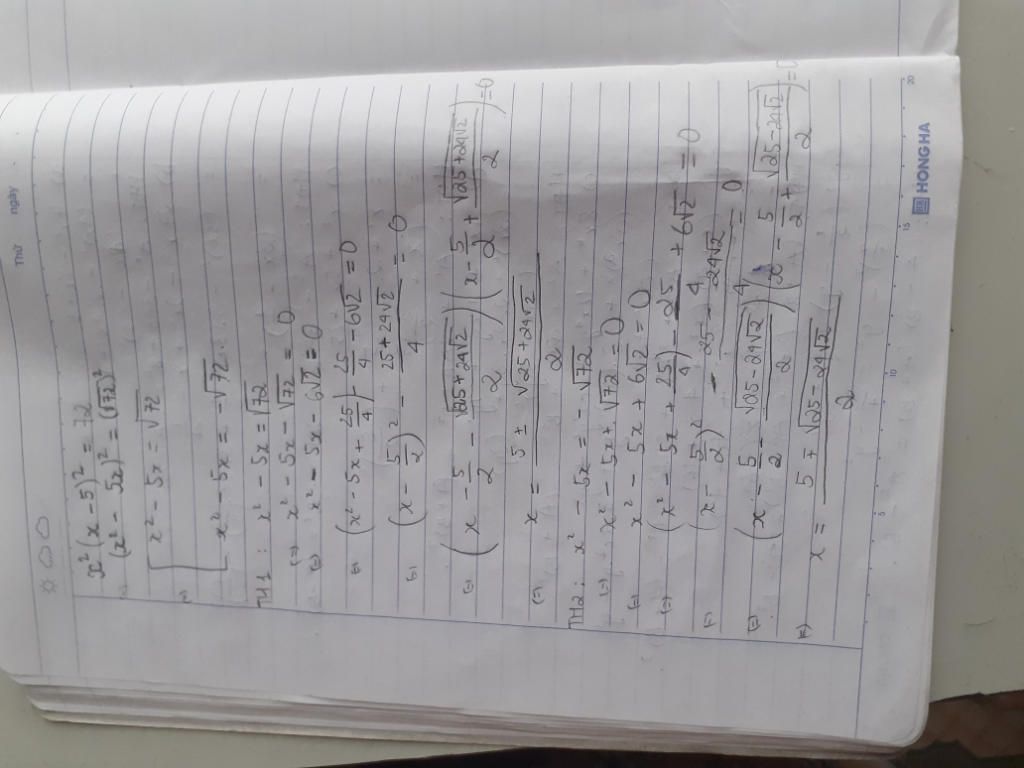 Thứ ngày
x² (x - 5)² = 72
(=) (x² - 5x)² = (√72)²
(=) [ x² - 5x = √72
x² - 5x = -√72
TH1 : x² - 5x = √72
(=) x² - 5x - √72 = 0
(=) x² - 5x - 6√2 = 0
(=) (x² - 5x + 25/4) - 25/4 - 6√2 = 0
(=) (x - 5/2)² - (25 + 24√2)/4 = 0
(=) (x - 5/2 - √(25 + 24√2)/2) (x - 5/2 + √(25 + 24√2)/2) = 0
(=) x = (5 ± √(25 + 24√2))/2
TH2 : x² - 5x = - √72
(=) x² - 5x + √72 = 0
(=) x² - 5x + 6√2 = 0
(=) (x² - 5x + 25/4) - 25/4 + 6√2 = 0
(=) (x - 5/2)² - (25 - 24√2)/4 = 0
(=) (x - 5/2 - √(25 - 24√2)/2) (x - 5/2 + √(25 - 24√2)/2) = 0
(=) x = (5 ± √(25 - 24√2))/2
5 10 15 20
HONG HA